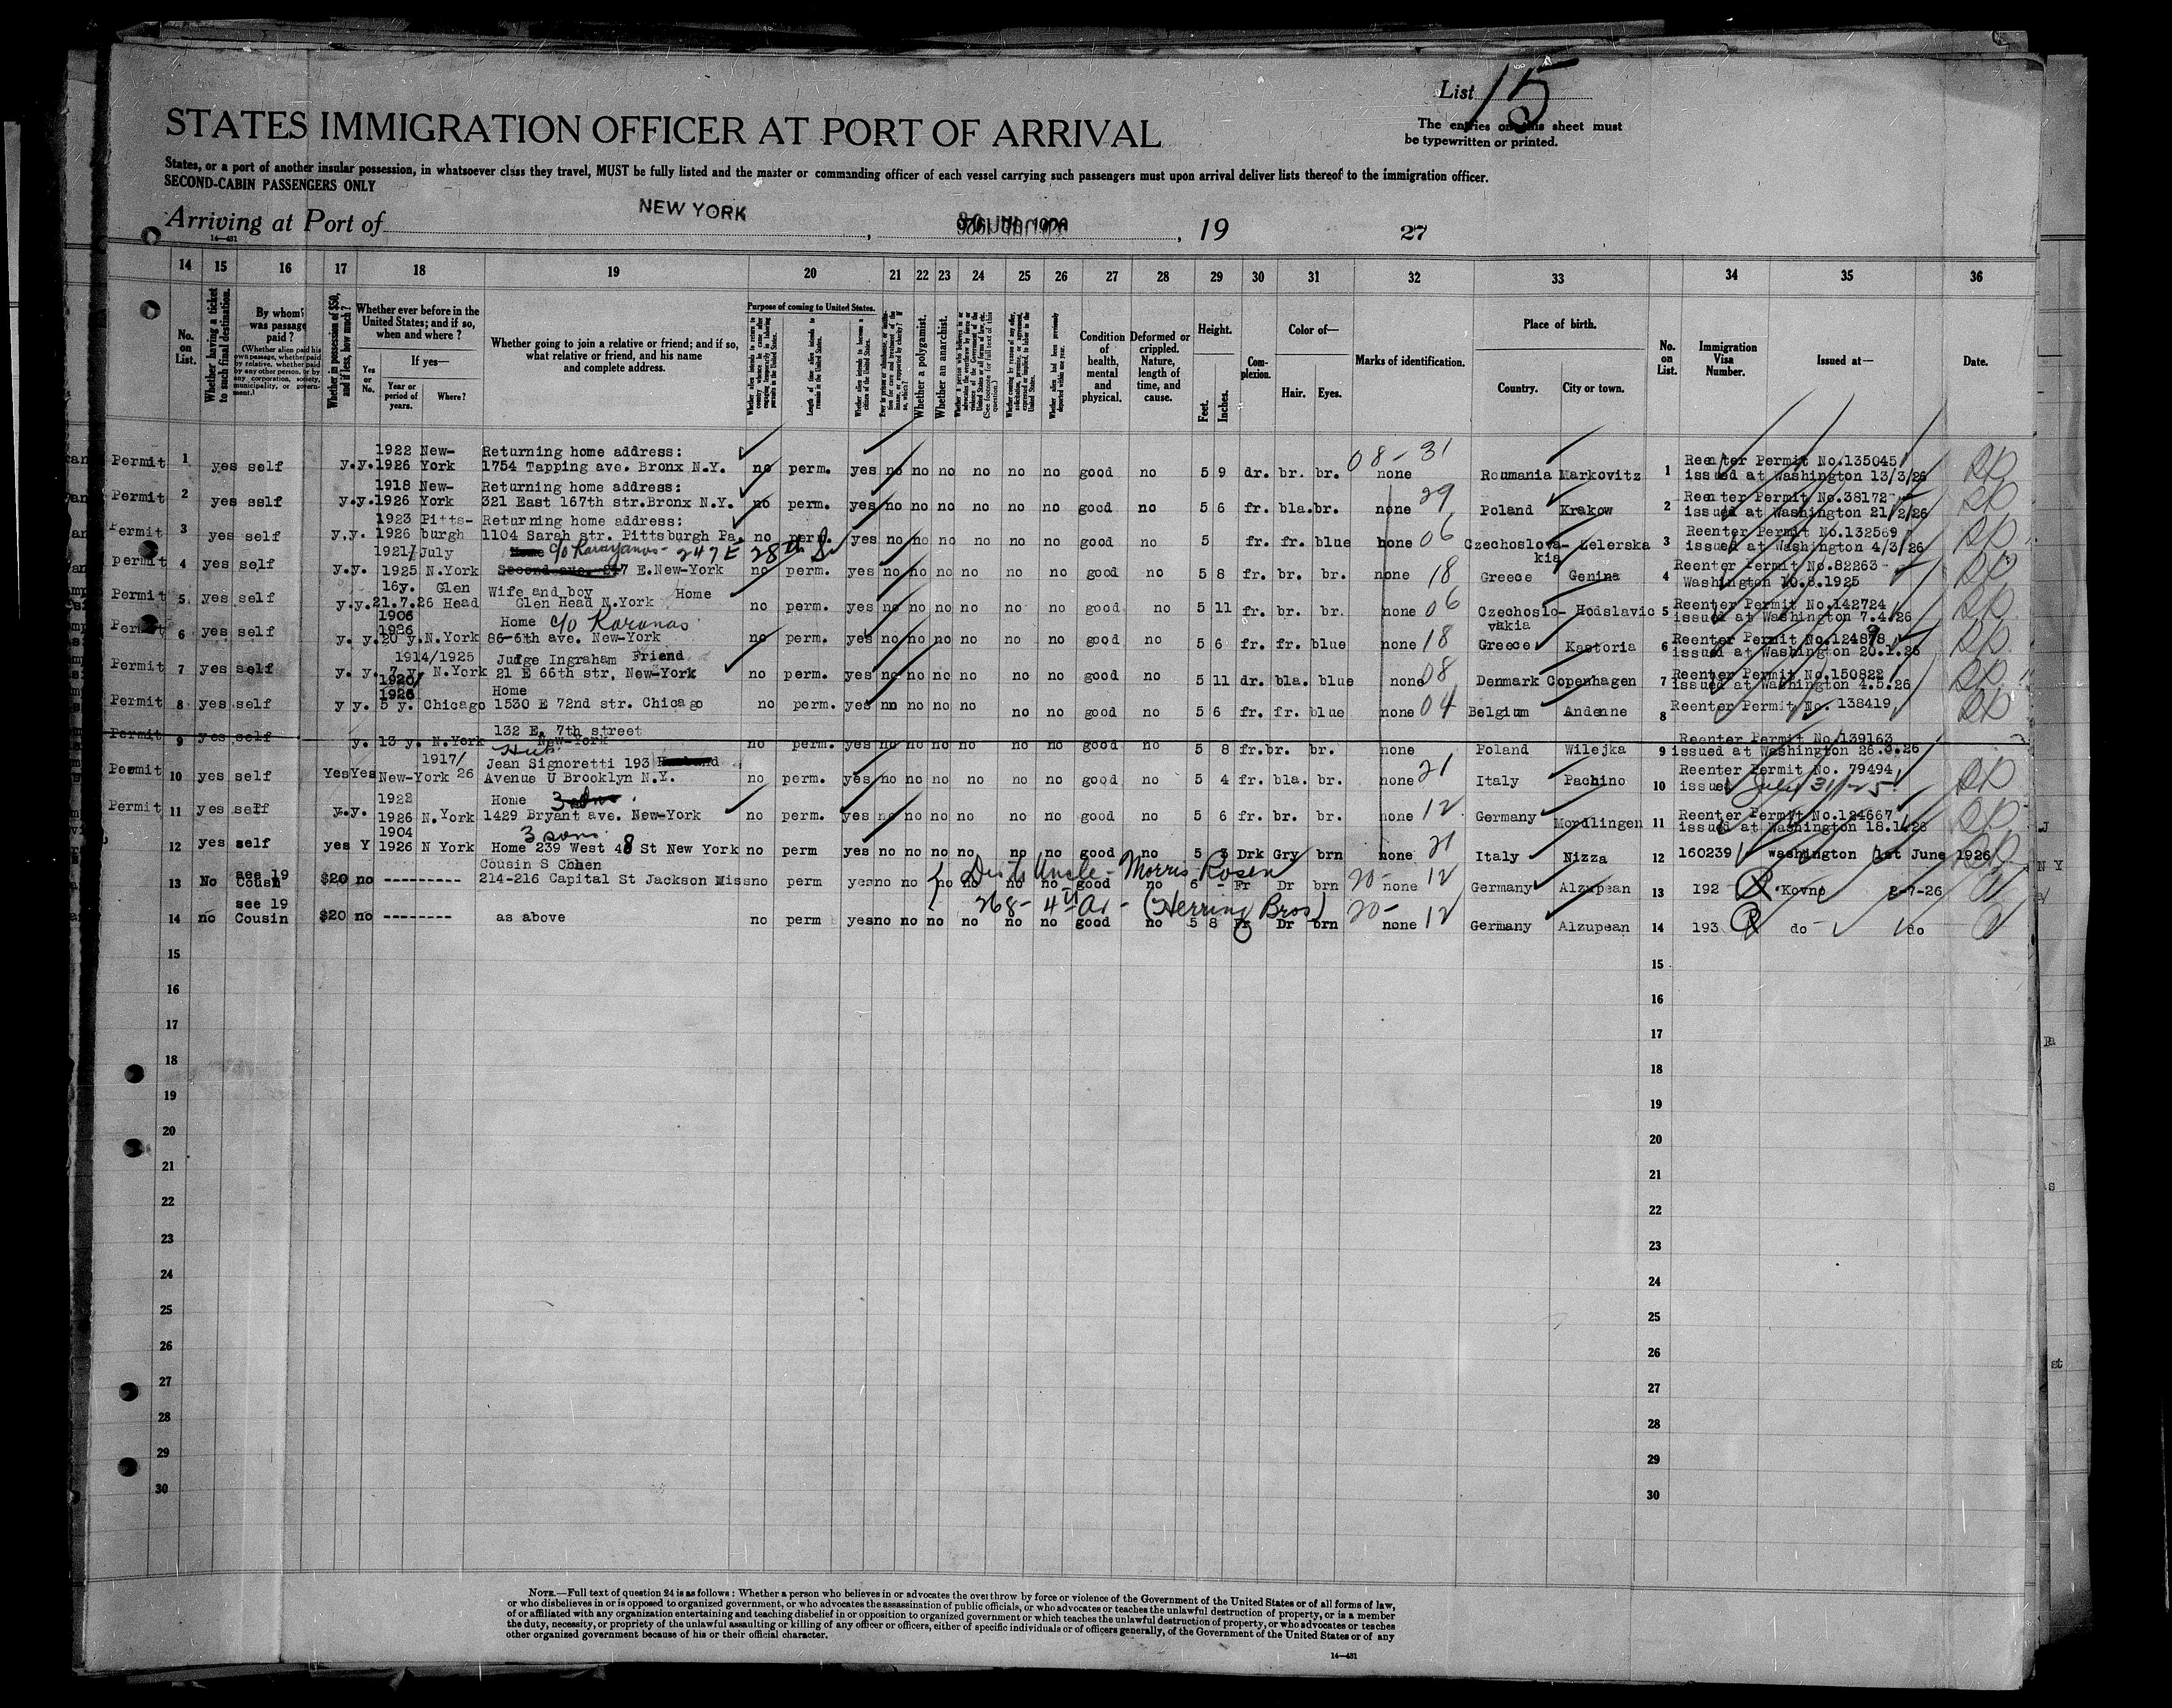 List 15
STATES IMMIGRATION OFFICER AT PORT OF ARRIVAL
The entries on this sheet must
be typewritten or printed.
States, or a port of another insular possession, in whatsoever class they travel, MUST be fully listed and the master or commanding officer of each vessel carrying such passengers must upon arrival deliver lists thereof to the immigration officer.
SECOND-CABIN PASSENGERS ONLY
Arriving at Port of NEW YORK , , 19 27
14—431
14 15 16 17 18 19 20 21 22 23 24 25 26 27 28 29 30 31 32 33 34 35 36
No. on List.
Whether having a ticket to such final destination.
By whom was passage paid?
(Whether alien paid his own passage, whether paid by relative, whether paid by any other person, or by any corporation, society, municipality, or government.)
Whether in possession of $50, and if less, how much?
Whether ever before in the United States; and if so, when and where?
If yes—
Yes or No.
Year or period of years.
Where?
Whether going to join a relative or friend; and if so, what relative or friend, and his name and complete address.
Purpose of coming to United States.
Length of time alien intends to remain in the United States.
Whether alien intends to become a citizen of the United States.
Whether a polygamist.
Whether an anarchist.
Condition of health, mental and physical.
Deformed or crippled. Nature, length of time, and cause.
Height.
Feet. Inches.
Complexion.
Color of—
Hair. Eyes.
Marks of identification.
Place of birth.
Country. City or town.
No. on List.
Immigration Visa Number.
Issued at—
Date.
1922 New- Returning home address: 08-31 Reenter Permit No.135045
Permit 1 yes self y.y. 1926 York 1754 Tapping ave. Bronx N.Y. no perm. yes no no no no no no good no 5 9 dr. br. br. none Roumania Markovitz 1 issued at Washington 13/3/26
1918 New- Returning home address: 29 Reenter Permit No.38172
Permit 2 yes self y.y. 1926 York 321 East 167th str. Bronx N.Y. no perm. yes no no no no no no good no 5 6 fr. bla. br. none Poland Krakow 2 issued at Washington 21/2/26
1923 Pitts- Returning home address: 06 Reenter Permit No.132569
Permit 3 yes self y.y. 1926 burgh 1104 Sarah str. Pittsburgh Pa. no perm. yes no no no no no no good no 5 fr. fr. blue none Czechoslova-kia Zelerska 3 issued at Washington 4/3/26
1921/ July c/o 247 E 28th St 18 Reenter Permit No.82263
Permit 4 yes self y.y. 1925 N.York E.New-York no perm. yes no no no no no no good no 5 8 fr. br. br. none Greece Genina 4 Washington 10.8.1925
16y. Glen Wife and boy Home 06 Reenter Permit No.142724
Permit 5 yes self y.y. 21.7.26 Head Glen Head N.York no perm. yes no no no no no no good no 5 11 fr. br. br. none Czechoslo-vakia Hodslavic 5 issued at Washington 7.4.26
1906 1926 Home c/o Karanas 18
Permit 6 yes self y. y. 20 y. N.York 86-6th ave. New-York no perm. yes no no no no no no good no 5 6 fr. fr. blue none Greece Kastoria 6 issued at Washington 20.1.26
1914/1925 Judge Ingraham Friend 08 Reenter Permit No.150822
Permit 7 yes self y. y. 7 y. N.York 21 E 66th str, New-York no perm. yes no no no no no no good no 5 11 dr. bla. blue none Denmark Copenhagen 7 issued at Washington 4.5.26
1920/ 1926 Home 04
Permit 8 yes self y y. 5 y. Chicago 1530 E 72nd str. Chicago no perm. yes no no no no no no good no 5 6 fr. fr. blue none Belgium Andenne 8 Reenter Permit No. 138419
132 E, 7th street Reenter Permit No.139163
Permit 9 yes self y. 13 y. N.York New-York no perm. yes no no no no no no good no 5 8 fr. br. br. none Poland Wilejka 9 issued at Washington 26.3.26
1917/ Hus Jean Signoretti 193 21 Reenter Permit No. 79494
Permit 10 yes self Yes Yes New-York 26 Avenue U Brooklyn N.Y. no perm. yes no no no no no no good no 5 4 fr. bla. br. none Italy Pachino 10 issued July 31/25
1922 Home 12 Reenter Permit No.124667
Permit 11 yes self y.y. 1926 N.York 1429 Bryant ave. New-York no perm. yes no no no no no no good no 5 6 fr. br. br. none Germany Mordlingen 11 issued at Washington 18.1.26
1904 3 sons 21
12 yes self yes Y 1926 N York Home 239 West 48 St New York no perm yes no no no no no no good no 5 3 Drk Gry brn none Italy Nizza 12 160239 Washington 1st June 1926
see 19 Cousin S Cohen Uncle - Morris Rosen 20- 12
13 No Cousn $20 no --------- 214-216 Capital St Jackson Miss no perm yes no no no no no no good no 6 - Fr Dr brn none Germany Alzupean 13 192 Kovno 2-7-26
see 19 268 - 4th Av - (Herring Bros) 20- 12
14 no Cousin $20 no -------- as above no perm yes no no no no no no good no 5 8 Fr Dr brn none Germany Alzupean 14 193 do do
15 15
16 16
17 17
18 18
19 19
20 20
21 21
22 22
23 23
24 24
25 25
26 26
27 27
28 28
29 29
30 30
NOTE.—Full text of question 24 is as follows: Whether a person who believes in or advocates the overthrow by force or violence of the Government of the United States or of all forms of law,
or who disbelieves in or is opposed to organized government, or who advocates the assassination of public officials, or who advocates or teaches the unlawful destruction of property, or is a member
of or affiliated with any organization entertaining and teaching disbelief in or opposition to organized government or which teaches the unlawful destruction of property, or who advocates or teaches
the duty, necessity, or propriety of the unlawful assaulting or killing of any officer or officers, either of specific individuals or of officers generally, of the Government of the United States or of any
other organized government because of his or their official character.
14—431